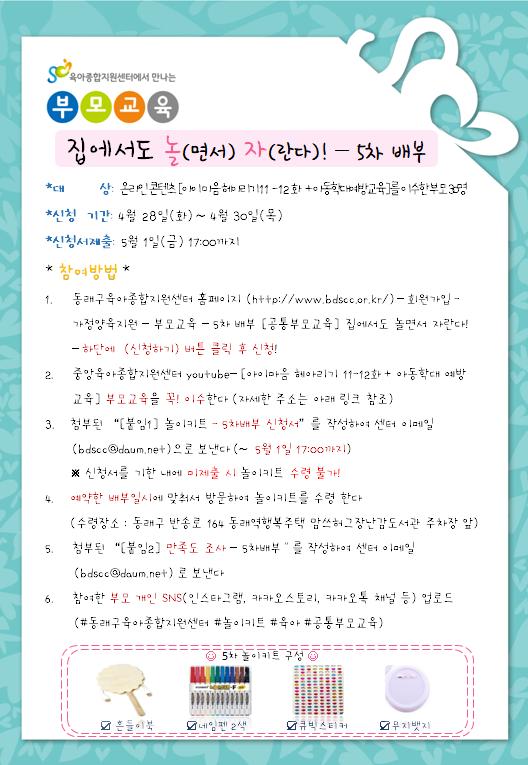 육아종합지원센터에서 만나는
부모교육
집에서도 놀(면서) 자(란다)! - 5차 배부
*대 상: 온라인콘텐츠[아이마음헤아리기11~12화+아동학대예방교육]를이수한부모30명
*신청 기간: 4월 28일(화) ~ 4월 30일(목)
*신청서제출: 5월 1일(금) 17:00까지
* 참여방법 *
1. 동래구육아종합지원센터 홈페이지 (http://www.bdscc.or.kr/) - 회원가입 -
가정양육지원 - 부모교육 - 5차 배부 [공통부모교육] 집에서도 놀면서 자란다!
- 하단에 (신청하기) 버튼 클릭 후 신청!
2. 중앙육아종합지원센터 youtube- [아이마음 헤아리기 11-12화 + 아동학대 예방
교육] 부모교육을 꼭! 이수한다 (자세한 주소는 아래 링크 참조)
3. 첨부된 "[붙임1] 놀이키트 - 5차배부 신청서" 를 작성하여 센터 이메일
(bdscc@daum.net)으로 보낸다 (~ 5월 1일 17:00까지)
※ 신청서를 기한 내에 미제출 시 놀이키트 수령 불가!
4. 예약한 배부일시에 맞춰서 방문하여 놀이키트를 수령 한다
(수령장소 : 동래구 반송로 164 동래역행복주택 맘쓰허그장난감도서관 주차장 앞)
5. 첨부된 "[붙임2] 만족도 조사 - 5차배부 " 를 작성하여 센터 이메일
(bdscc@daum.net) 로 보낸다
6. 참여한 부모 개인 SNS(인스타그램, 카카오스토리, 카카오톡 채널 등) 업로드
(#동래구육아종합지원센터 #놀이키트 #육아 #공통부모교육)
☺ 5차 놀이키트 구성 ☺
☑ 흔들이북 ☑네임펜 2색 ☑큐빅스티커 ☑무지뱃지